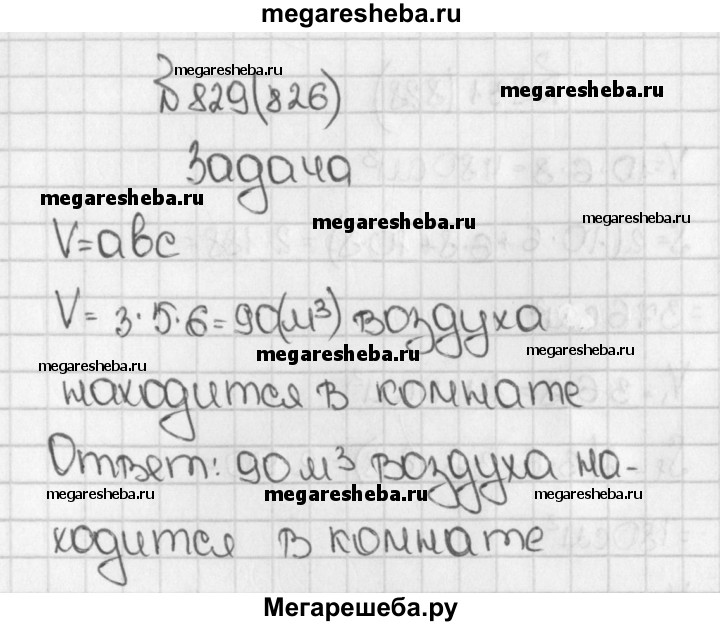 megaresheba.ru
megaresheba.ru
№829(826)
megaresheba.ru
Задача
megaresheba.ru
megaresheba.ru
megaresheba.ru
V=abc
V= 3·5·6=90(м³) воздуха
megaresheba.ru
megaresheba.ru
megaresheba.ru
находится в комнате
Ответ: 90 м³ воздуха на-
megaresheba.ru
megaresheba.ru
megaresheba.ru
ходится в комнате
Мегарешеба.ру